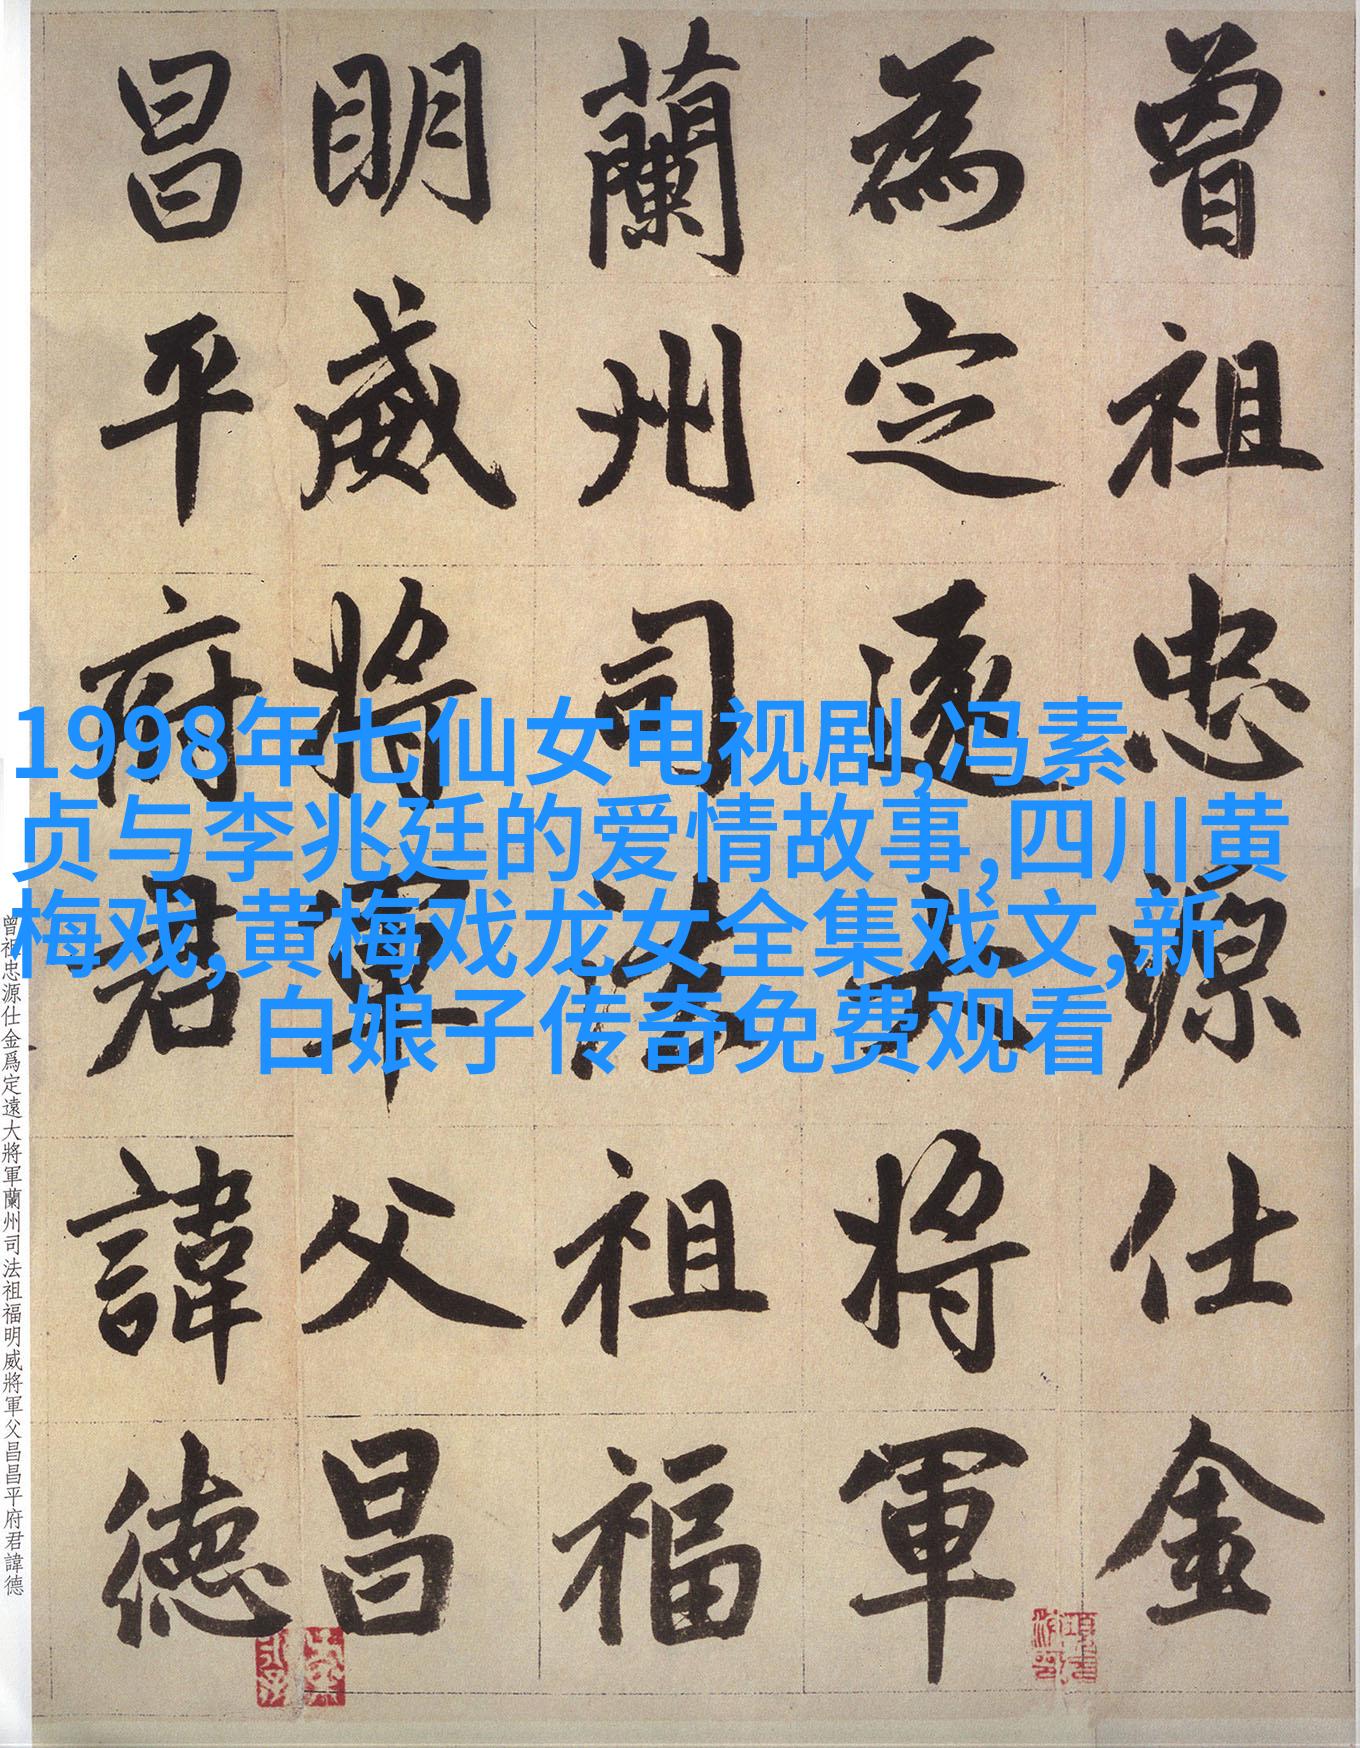 曾祖忠源仕金
為定遠大將軍
蘭州司法祖福
明威將軍父昌
昌平府君諱德
1998年七仙女电视剧,冯素
贞与李兆廷的爱情故事,四川黄
梅戏,黄梅戏龙女全集戏文,新
白娘子传奇免费观看
曾祖忠源仕金爲定遠大將軍蘭州司法祖福明威將軍父昌昌平府君諱德